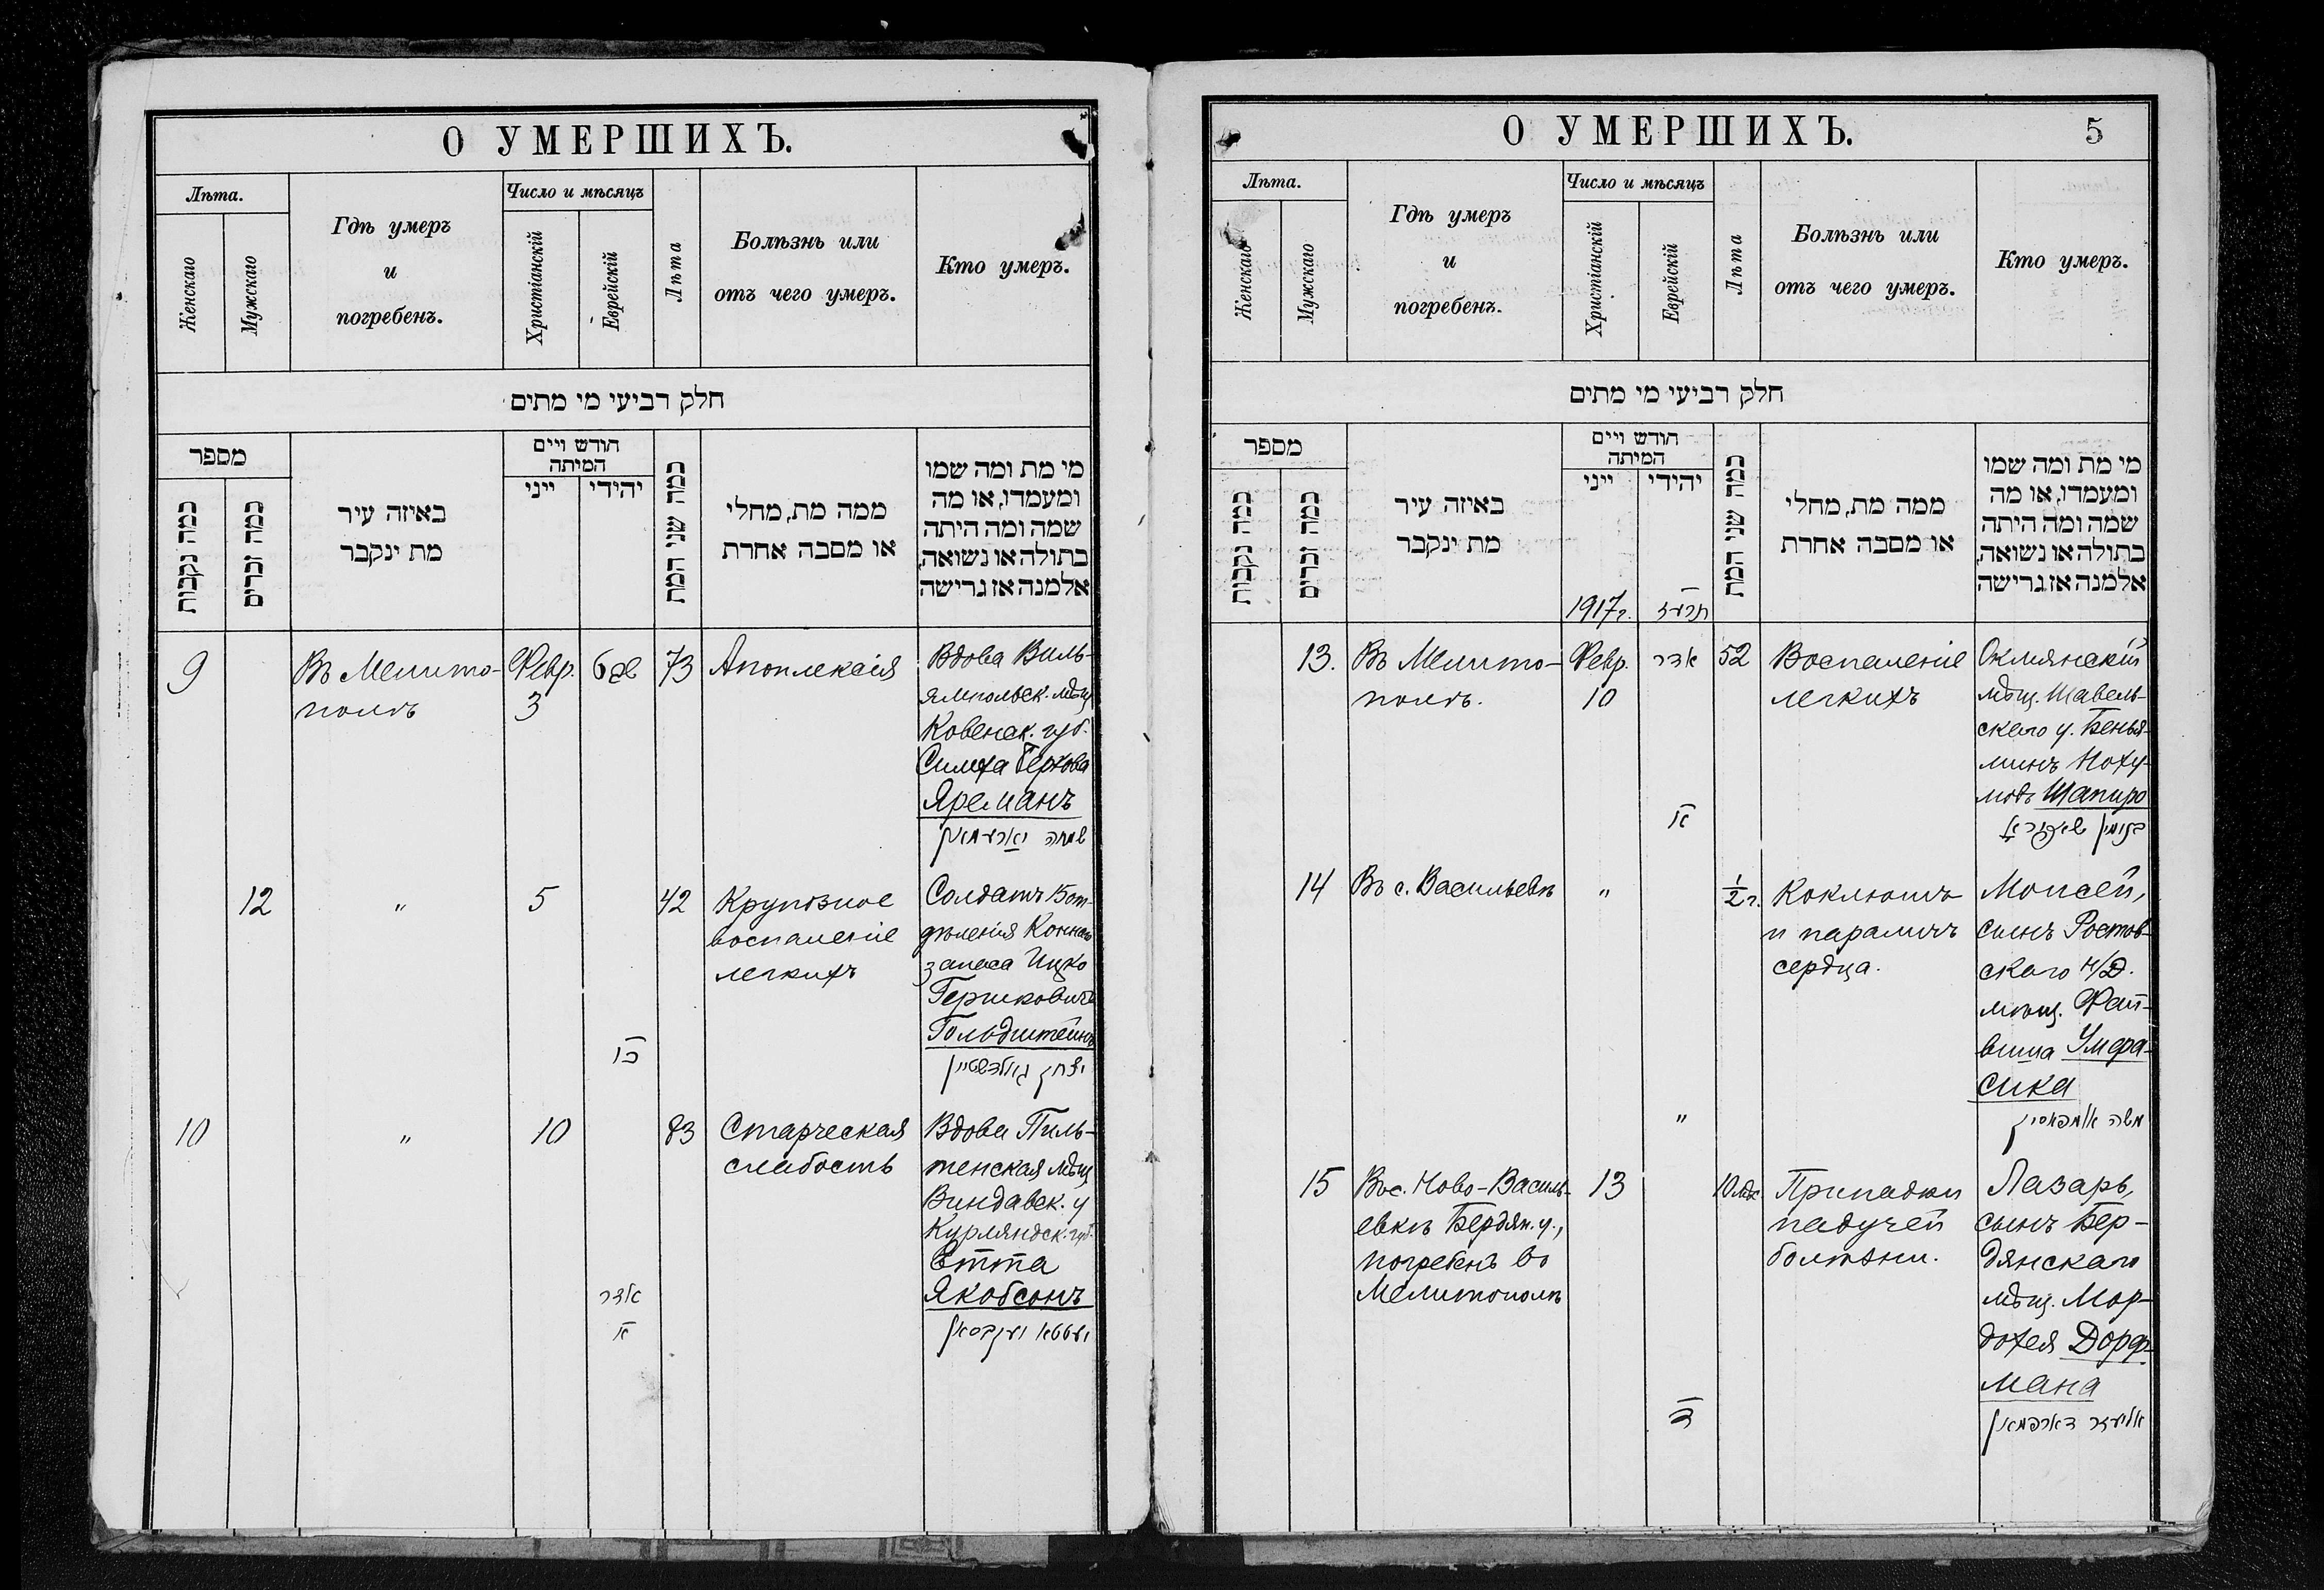 О УМЕРШИХЪ.
Лѣта.
Женскаго
Мужскаго
Гдѣ умеръ
и
погребенъ.
Число и мѣсяцъ
Христіанскій
Еврейскій
Лѣта
Болѣзнь или
отъ чего умеръ.
Кто умеръ.
חלק רביעי מי מתים
מספר
כמה נקבות
כמה זכרים
באיזה עיר
מת ינקבר
חודש ויים
המיתה
ייני
יהידי
כמה שני המת
ממה מת, מחלי
או מסבה אחרת
מי מת ומה שמו
ומעמדו, או מה
שמה ומה היתה
בתולה או נשואה,
אלמנה אז גרישה
9
Въ Мелито-
полѣ
Февр.
3
73
Апоплексія
Вдова Виль-
ямпольск. мѣщ
Ковенск. губ.
Симха Беркова
Яреманъ
שמחה יארעמאן
12
"
5
כו
42
Крупозное
воспаленіе
легкихъ
Солдатъ 15 от-
дѣленія Коннаго
запаса Ицко
Гершковичъ
Гольдштейнъ
יצחק גולדשטיין
10
"
10
אדר
א
83
Старческая
слабость
Вдова Пиль-
тенская мѣщ
Виндавск. у
Курляндск. губ.
Етта
Якобсонъ
יעטטא יעקבסאן
О УМЕРШИХЪ.
5
Лѣта.
Женскаго
Мужскаго
Гдѣ умеръ
и
погребенъ.
Число и мѣсяцъ
Христіанскій
Еврейскій
Лѣта
Болѣзнь или
отъ чего умеръ.
Кто умеръ.
חלק רביעי מי מתים
מספר
כמה נקבות
כמה זכרים
באיזה עיר
מת ינקבר
חודש ויים
המיתה
ייני
יהידי
1917г.
תרעז
כמה שני המת
ממה מת, מחלי
או מסבה אחרת
מי מת ומה שמו
ומעמדו, או מה
שמה ומה היתה
בתולה או נשואה,
אלמנה אז גרישה
13.
Въ Мелито-
полѣ.
Февр.
10
אדר
א
52
Воспаленіе
легкихъ
Окмянскій
мѣщ. Шавель-
скаго у. Бенья-
минъНоху-
мовъ Шапиро
14
Въ с. Васильевкѣ
"
"
1/2 г.
Коклюшъ
и параличъ
сердца.
Моисей,
сынъ Ростов-
скаго н/Д.
мѣщ. Фай-
виша Умфа-
сика
משה אומפאסיק
15
Въ с. Ново-Василь-
евкѣ Бердян. у.,
погребенъ въ
Мелитополѣ
13
ד
10 мѣс
Припадки
падучей
болѣзни.
Лазарь,
сынъ Бер-
дянскаго
мѣщ. Мор-
дохея Дорф-
мана
אליעזר דארפמאן